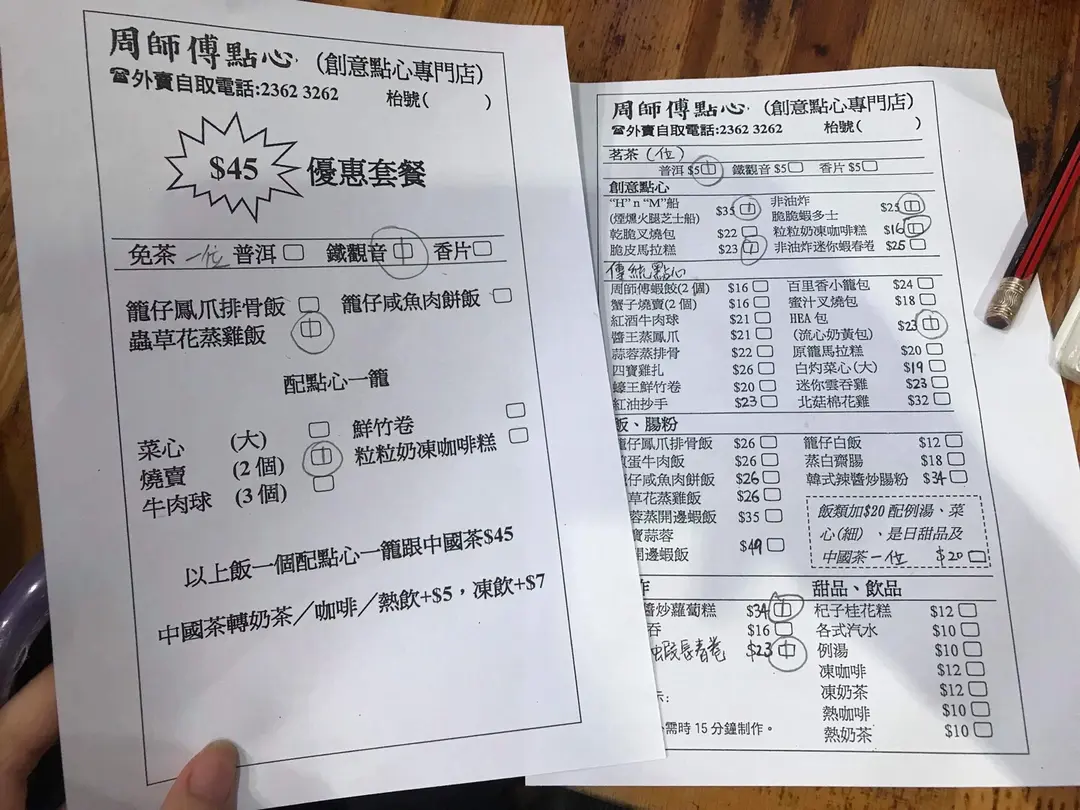 周師傅點心 (創意點心專門店)
☎外賣自取電話:2362 3262 枱號( )
$45 優惠套餐
免茶 一位 普洱 鐵觀音 香片
籠仔鳳爪排骨飯 籠仔咸魚肉餅飯
蟲草花蒸雞飯
配點心一籠
菜心 (大) 鮮竹卷
燒賣 (2個) 粒粒奶凍咖啡糕
牛肉球 (3個)
以上飯一個配點心一籠跟中國茶$45
中國茶轉奶茶／咖啡／熱飲+$5，凍飲+$7
周師傅點心 (創意點心專門店)
☎外賣自取電話:2362 3262 枱號( )
茗茶 (位)
普洱 $5 鐵觀音 $5 香片 $5
創意點心
"H" n "M"船 $35 非油炸 $25
(煙燻火腿芝士船) 脆脆蝦多士
乾脆叉燒包 $22 粒粒奶凍咖啡糕 $16
脆皮馬拉糕 $23 非油炸迷你蝦春卷 $25
傳統點心
周師傅蝦餃(2個) $16 百里香小籠包 $24
蟹子燒賣(2個) $16 蜜汁叉燒包 $18
紅酒牛肉球 $21 HEA包 $23
醬王蒸鳳爪 $21 (流心奶黃包)
蒜蓉蒸排骨 $22 原籠馬拉糕 $20
四寶雞扎 $26 白灼菜心(大) $19
蠔王鮮竹卷 $20 迷你雲吞雞 $23
紅油抄手 $23 北菇棉花雞 $32
飯、腸粉
籠仔鳳爪排骨飯 $26 籠仔白飯 $12
蛋牛肉飯 $26 蒸白齋腸 $18
仔咸魚肉餅飯 $26 韓式辣醬炒腸粉 $34
草花蒸雞飯 $26
蓉蒸開邊蝦飯 $35
寶蒜蓉
開邊蝦飯 $49
飯類加$20 配例湯、菜
心(細)、是日甜品及
中國茶一位 $20
炸 甜品、飲品
醬炒蘿蔔糕 $34 杞子桂花糕 $12
吞 $16 各式汽水 $10
蝦長春卷 $23 例湯 $10
凍咖啡 $12
示: 凍奶茶 $12
熱咖啡 $10
需時 15 分鐘制作。 熱奶茶 $10